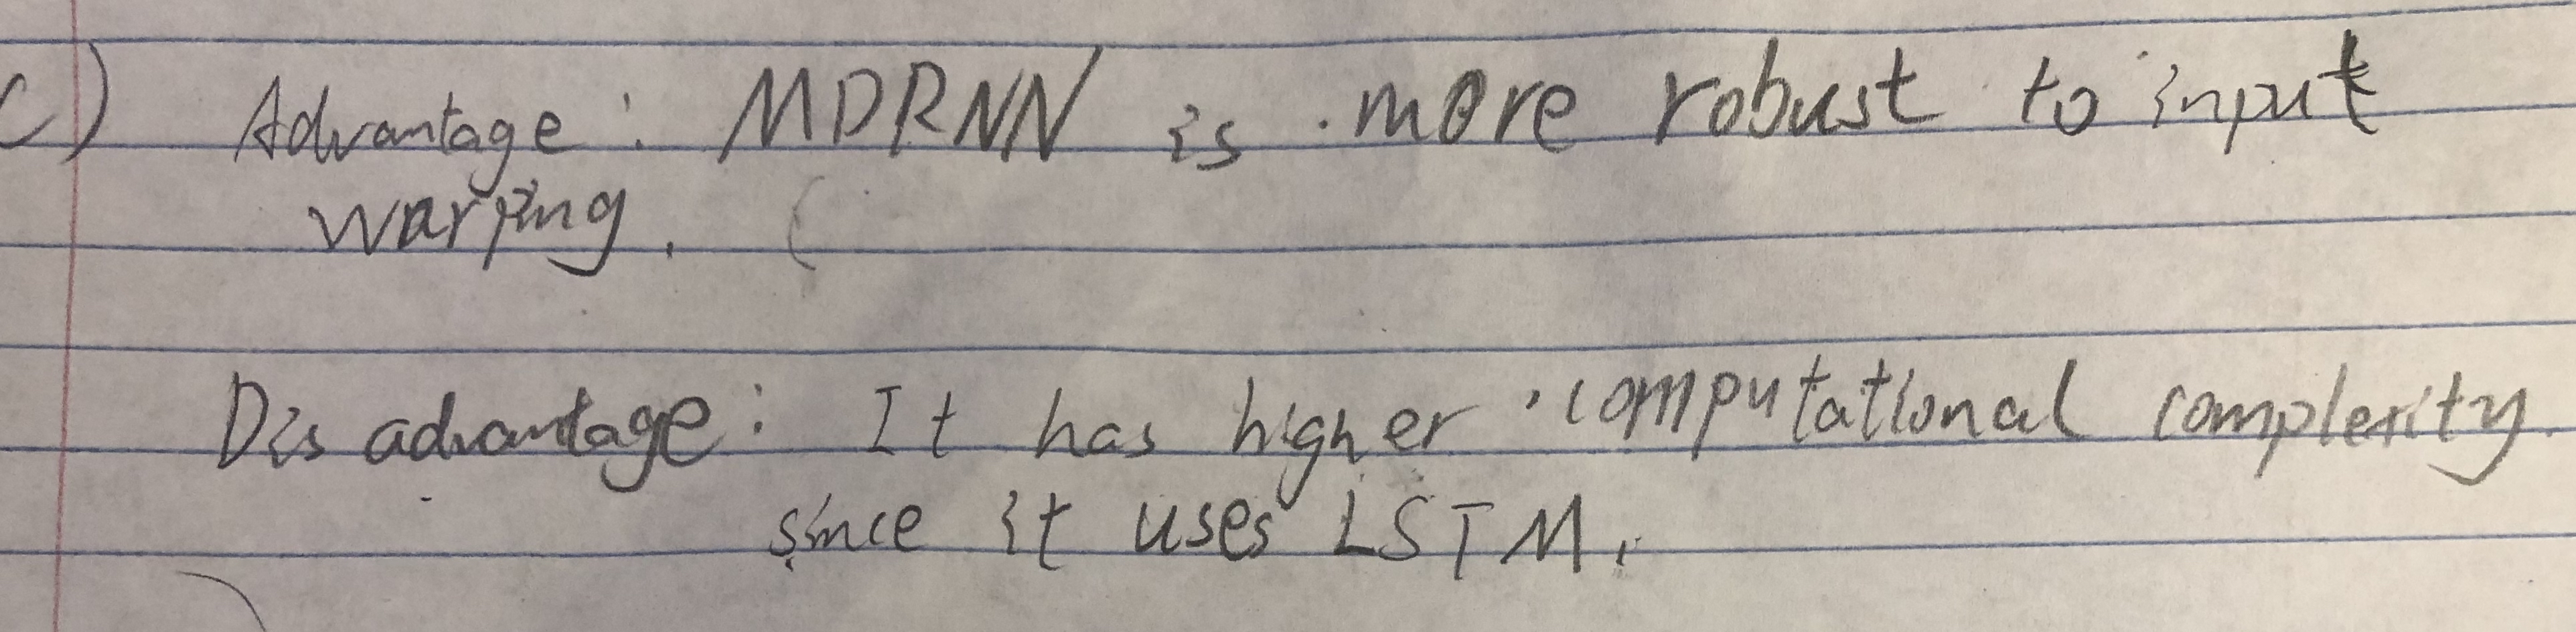 c) Advantage: MDRNN is more robust to input
warping. (
Disadvantage: It has higher computational complexity.
since it uses LSTM.